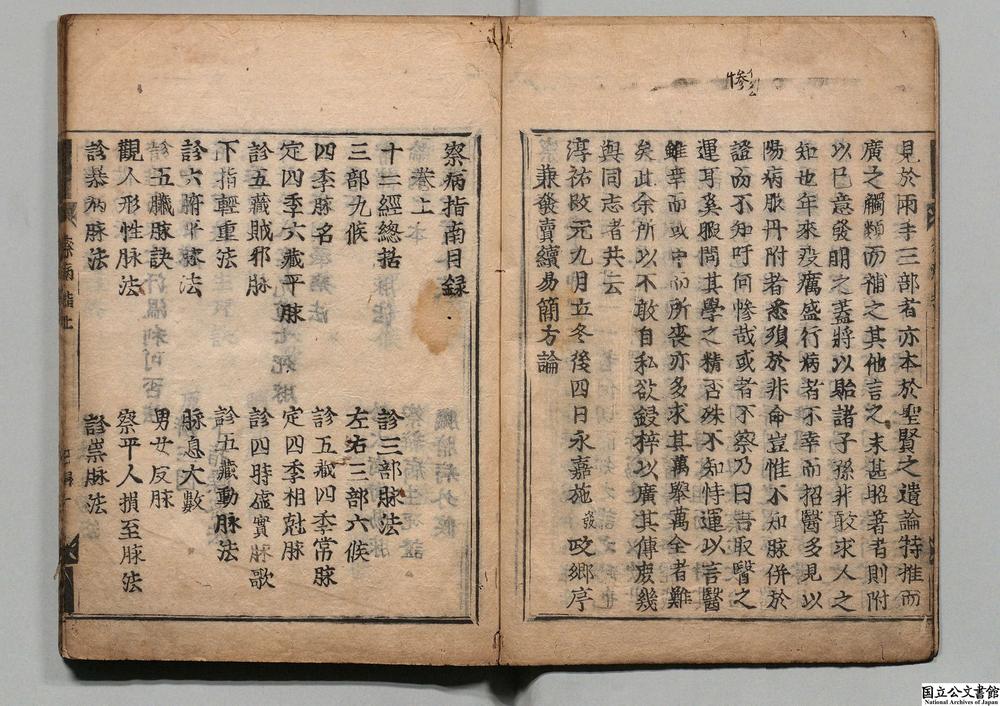 見於兩手三部者亦本於聖賢之遺論特推而
廣之觸類而補之其他言之未甚昭著者則附
以已意發明之蓋將以貽諸子孫非敢求人之
知也年來疫癘盛行病者不幸而招醫多見以
陽病服丹附者悉殞於非命豈惟不知脉併於
證而不知吁何慘哉或者不察乃曰吾取醫之
運耳奚暇問其學之精否殊不知恃運以言醫
雖幸而或中而所喪亦多求其萬舉萬全者難
矣此余所以不敢自私欲鋟梓以廣其傳庶幾
與同志者共云
淳祐改元九月立冬後四日永嘉施發政鄉序
兼發賣續易簡方論
察病指南目録
卷上
十二經總括
診三部脉法
三部九候
左右三部六候
四季脉名
診五藏四季常脉
定四季六藏平脉
定四季相尅脉
診五藏賊邪脉
診四時虛實脉歌
下指輕重法
診五藏動脉法
診六腑平脉法
脉息大數
診五臟脉訣
男女反脉
觀人形性脉法
察平人損至脉法
診暴病脉法
診祟脉法
慘
国立公文書館
National Archives of Japan